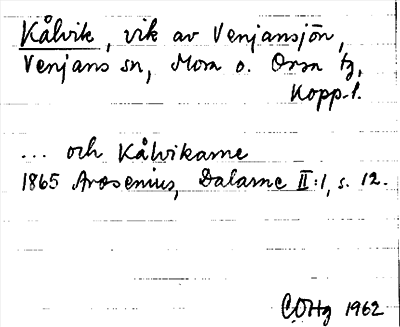 Kålvik, vik av Venjansjön,
Venjans sn, Mora o. Orsa tg,
Kopp. l.
... och Kålvikarne
1865 Arosenius, Dalarne II:1, s. 12.
COHg 1962